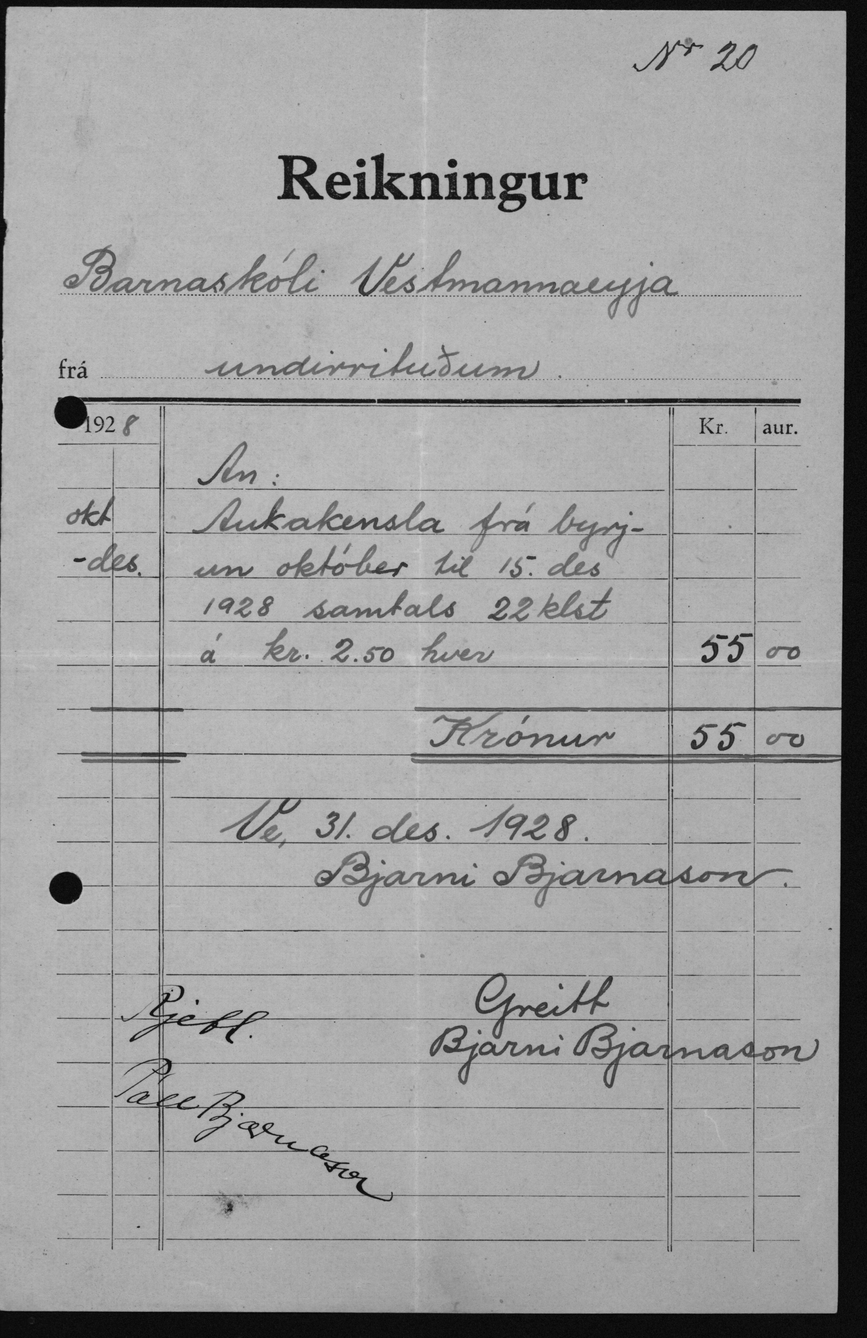 Nr 20
Reikningur
Barnaskóli Vestmannaeyja
frá undirrituðum
1928 Kr. aur.
An:
okt Aukakensla frá byrj-
-des. un október til 15. des
1928 samtals 22 klst
á kr. 2.50 hver 55 00
Krónur 55 00
Ve, 31. des. 1928.
Bjarni Bjarnason.
Greitt
Bjarni Bjarnason
Páll Bjarnason